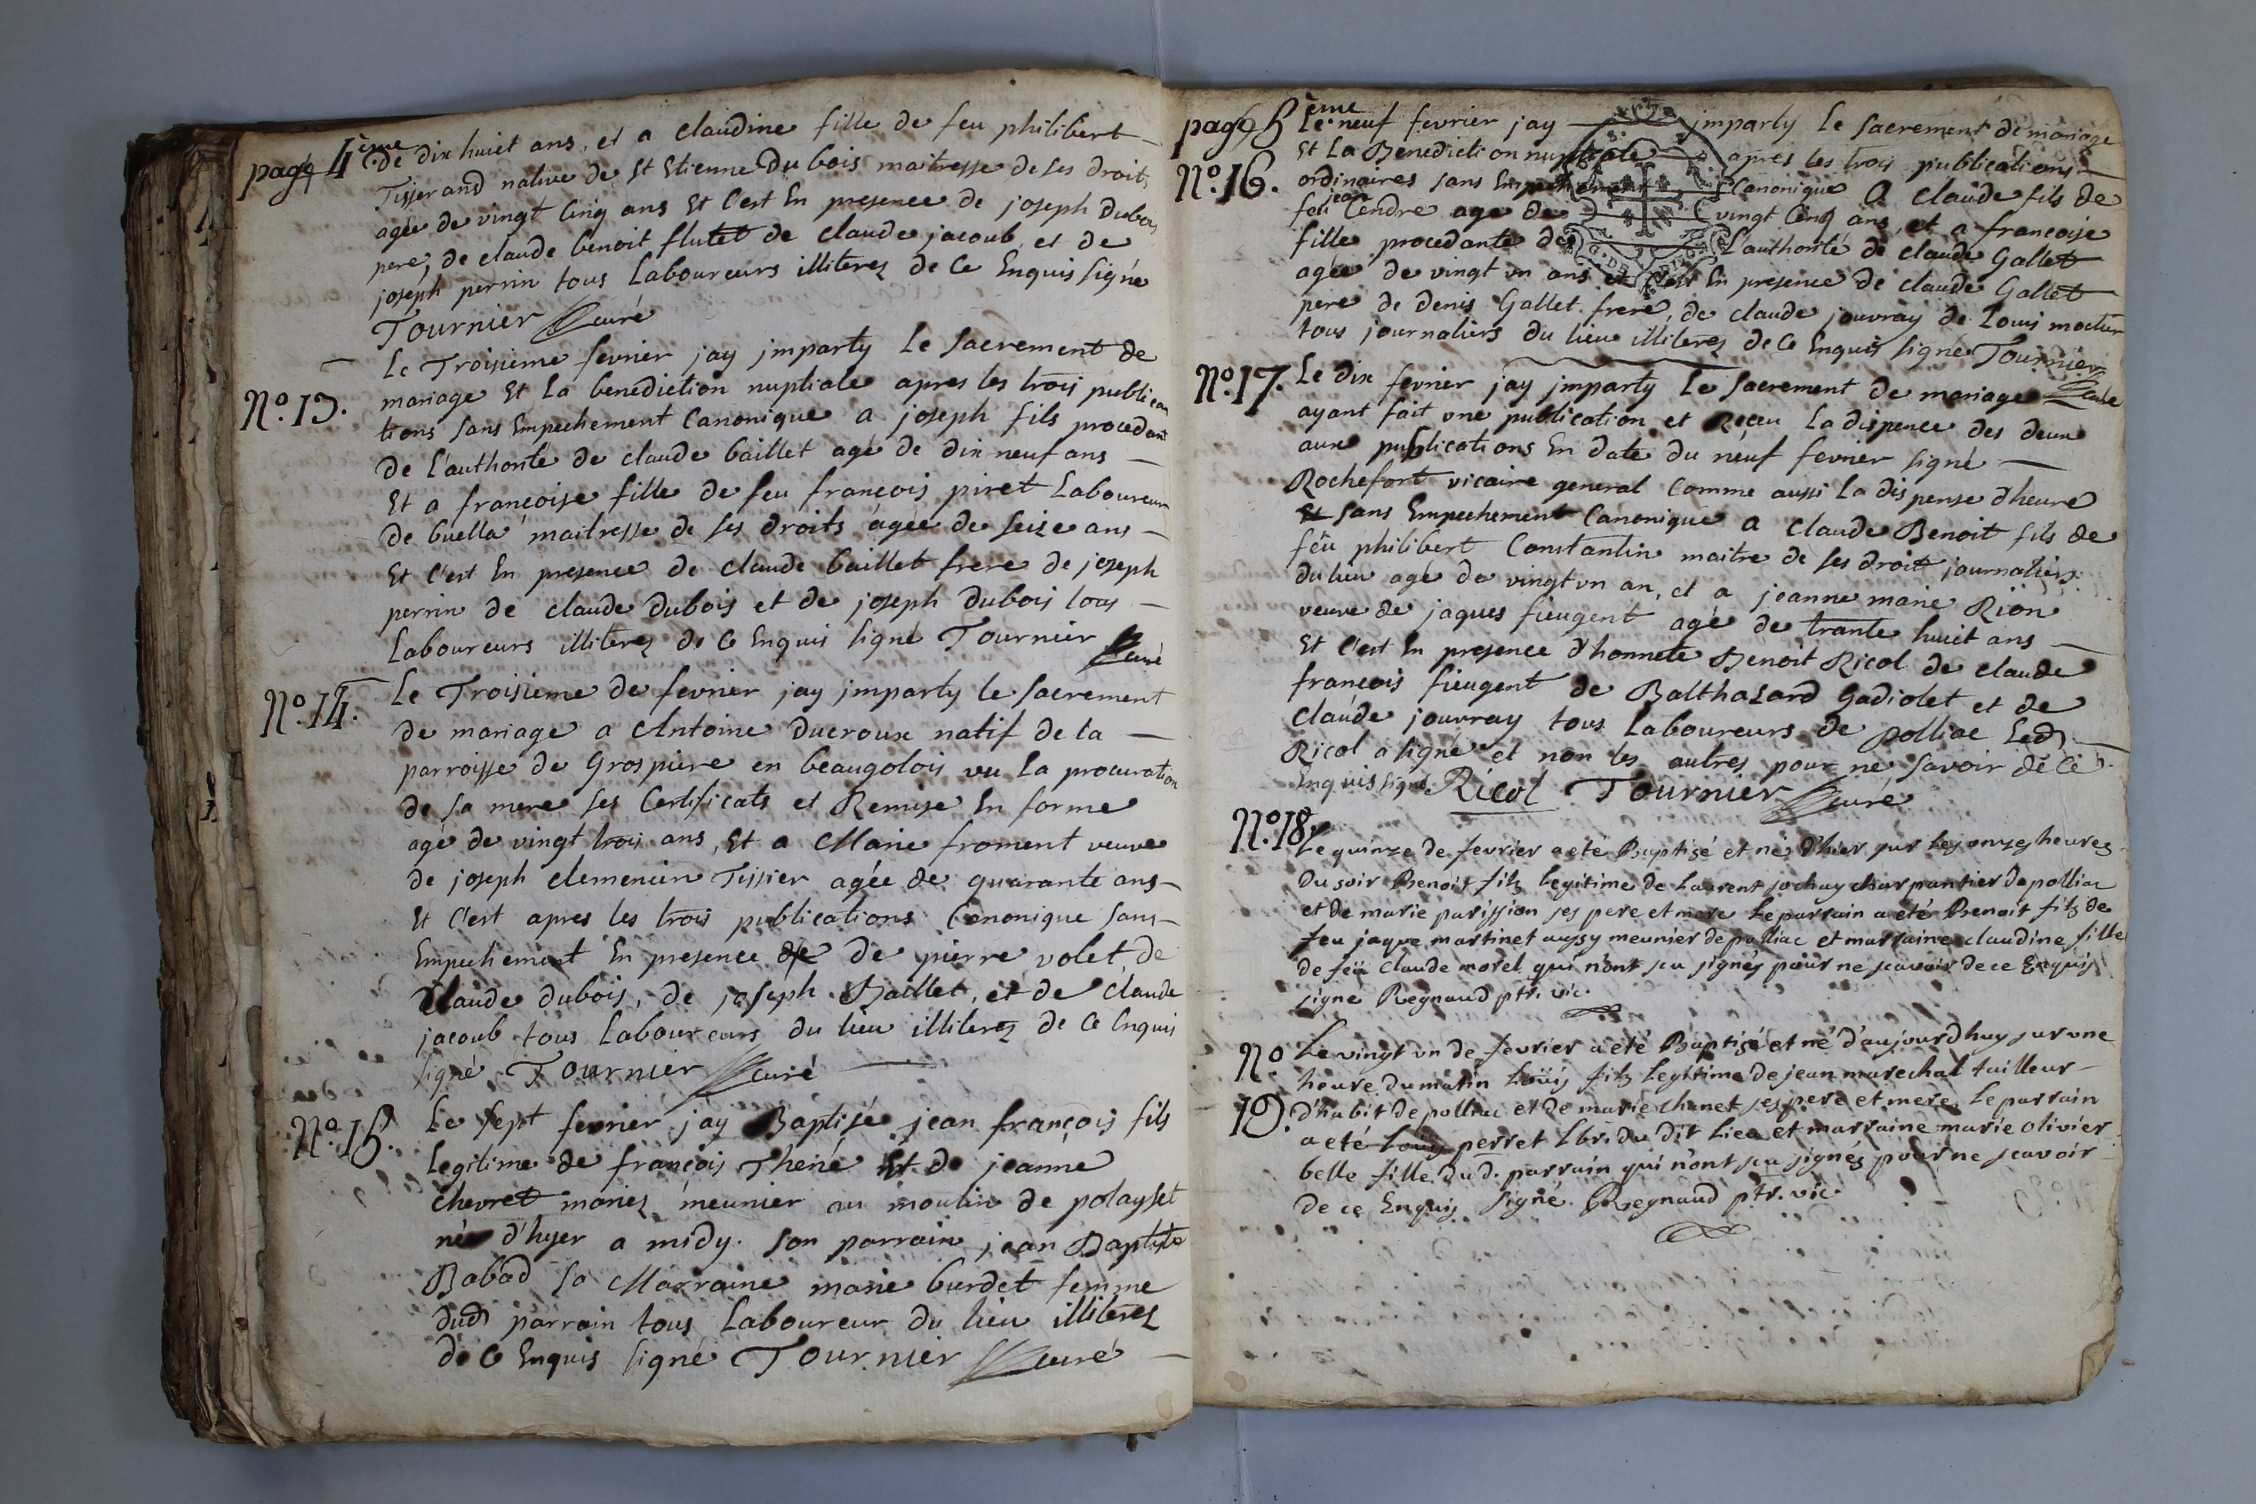 page 4ème
de dix huict ans, et a claudine fille de feu philibert
Tisserand native de St Etienne Du bois maitresse de ses droits
agée de vingt cinq ans Et C'est En presence de joseph Dubois
pere, de claude benoit flutet de claude jacoub et de
joseph perrin tous Laboureurs illiterez de Ce Enquis signé
Tournier curé
No. 13.
Le Troisieme fevrier jay jmparty Le sacrement de
mariage Et La benediction nuptiale apres les trois publica
tions sans Empechement Canonique a joseph fils procedant
De L'authorité de claude baillet agé de dix neuf ans
Et a francoise fille de feu francois piret Laboureur
de buella maitresse de ses droits agée de seize ans
Et C'est En presence de claude baillet frere de joseph
perrin de claude Dubois et de joseph Dubois tous
Laboureurs illiterez de Ce Enquis signé Tournier curé
No. 14.
Le Troisieme de fevrier jay jmparty le sacrement
de mariage a Antoine Ducroux natif de la
parroisse de Grospiere en beaugolois vu La procuration
de sa mere ses Certificats et Remise En forme
agé de vingt trois ans, Et a Marie froment veuve
de joseph clemencin Tissier agée de quarante ans
Et C'est apres les trois publications Canonique sans
Empechement En presence de de pierre volet, de
Claude dubois, de joseph Baillet, et de Claude
jacoub tous Laboureurs du lieu illiterez de Ce Enquis
signé Tournier curé
No. 15.
Le sept fevrier jay Baptisée jean françois fils
Legitime de françois Thené Et de jeanne
chevret mariez meunier au moulin de polayset
né d'hyer a midy. son parrain jean Baptiste
Babad sa Marraine marie burdet femme
dud parrain tous Laboureur du lieu illiterez
de Ce Enquis signé Tournier curé
page 5ème
No. 16.
Le neuf fevrier jay jmparty Le sacrement de mariage
Et La Benediction nuptiale apres les trois publications
ordinaires sans Empechement Canonique A claude fils de
jean
feu Cendre agé de vingt Cinq ans, et a francoise
fille procedante de L'authorité de claude Gallet
agée de vingt un ans et C'est En presence de claude Gallet
pere de denis Gallet frere, de claude jouvray de Louis
tous journaliers du lieu illiterez de Ce Enquis signé Tournier
curé
No. 17.
Le dix fevrier jay jmparty Le sacrement de mariage
ayant fait une publication et Receu La dispence des deux
aux publications En date du neuf fevrier signé
Rochefort vicaire general Comme aussi La dispense d'heure
Et sans Empechement Canonique a claude Benoit fils de
feu philibert Constantin maitre de ses droit journalier
du lieu agé de vingt un an, et a jeanne marie Rion
veuve de jaques fieugent agé de trante huict ans
Et C'est En presence d'honnete Benoit Ricol de claude
francois fieugent de Balthazard Gadiolet et de
Claude jouvray tous Laboureurs de polliac Led
Ricol a signé et non les autres pour ne savoir de Ce
Enquis signé Ricol Tournier curé
No. 18.
Le quinze de fevrier a eté Baptisé et né d'hier sur les onzes heures
du soir Benoit filz legitime de Laurent jochuy charpantier de polliac
et de marie parission ses pere et mere Le parrain a eté Benoit filz de
feu jaque martinet aussy meunier de polliac et marraine claudine fille
de feü Claude morel qui n'ont sçu signés pour ne sçavoir de ce Enquis
signé Regnaud ptr. vic.
No 19.
Le vingt un de fevrier a eté Baptisé et né d'aujourdhuy sur une
heure du matin Loüis filz legitime de jean marechal tailleur
d'habit de polliac et de marie chanet ses pere et mere Le parrain
a eté Loüis perret Lbr. du dit lieu et marraine marie olivier
belle fille dud. parrain qui n'ont sçu signés pour ne sçavoir
de ce Enquis signé Regnaud ptr. vic.